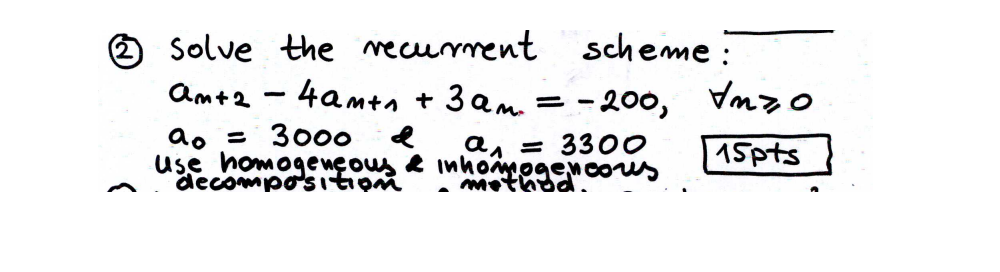 ② Solve the recurrent scheme:
aₙ₊₂ − 4aₙ₊₁ + 3aₙ = −200, ∀n ≥ 0
a₀ = 3000 & a₁ = 3300 15pts
use homogeneous & inhomogeneous
decomposition method.